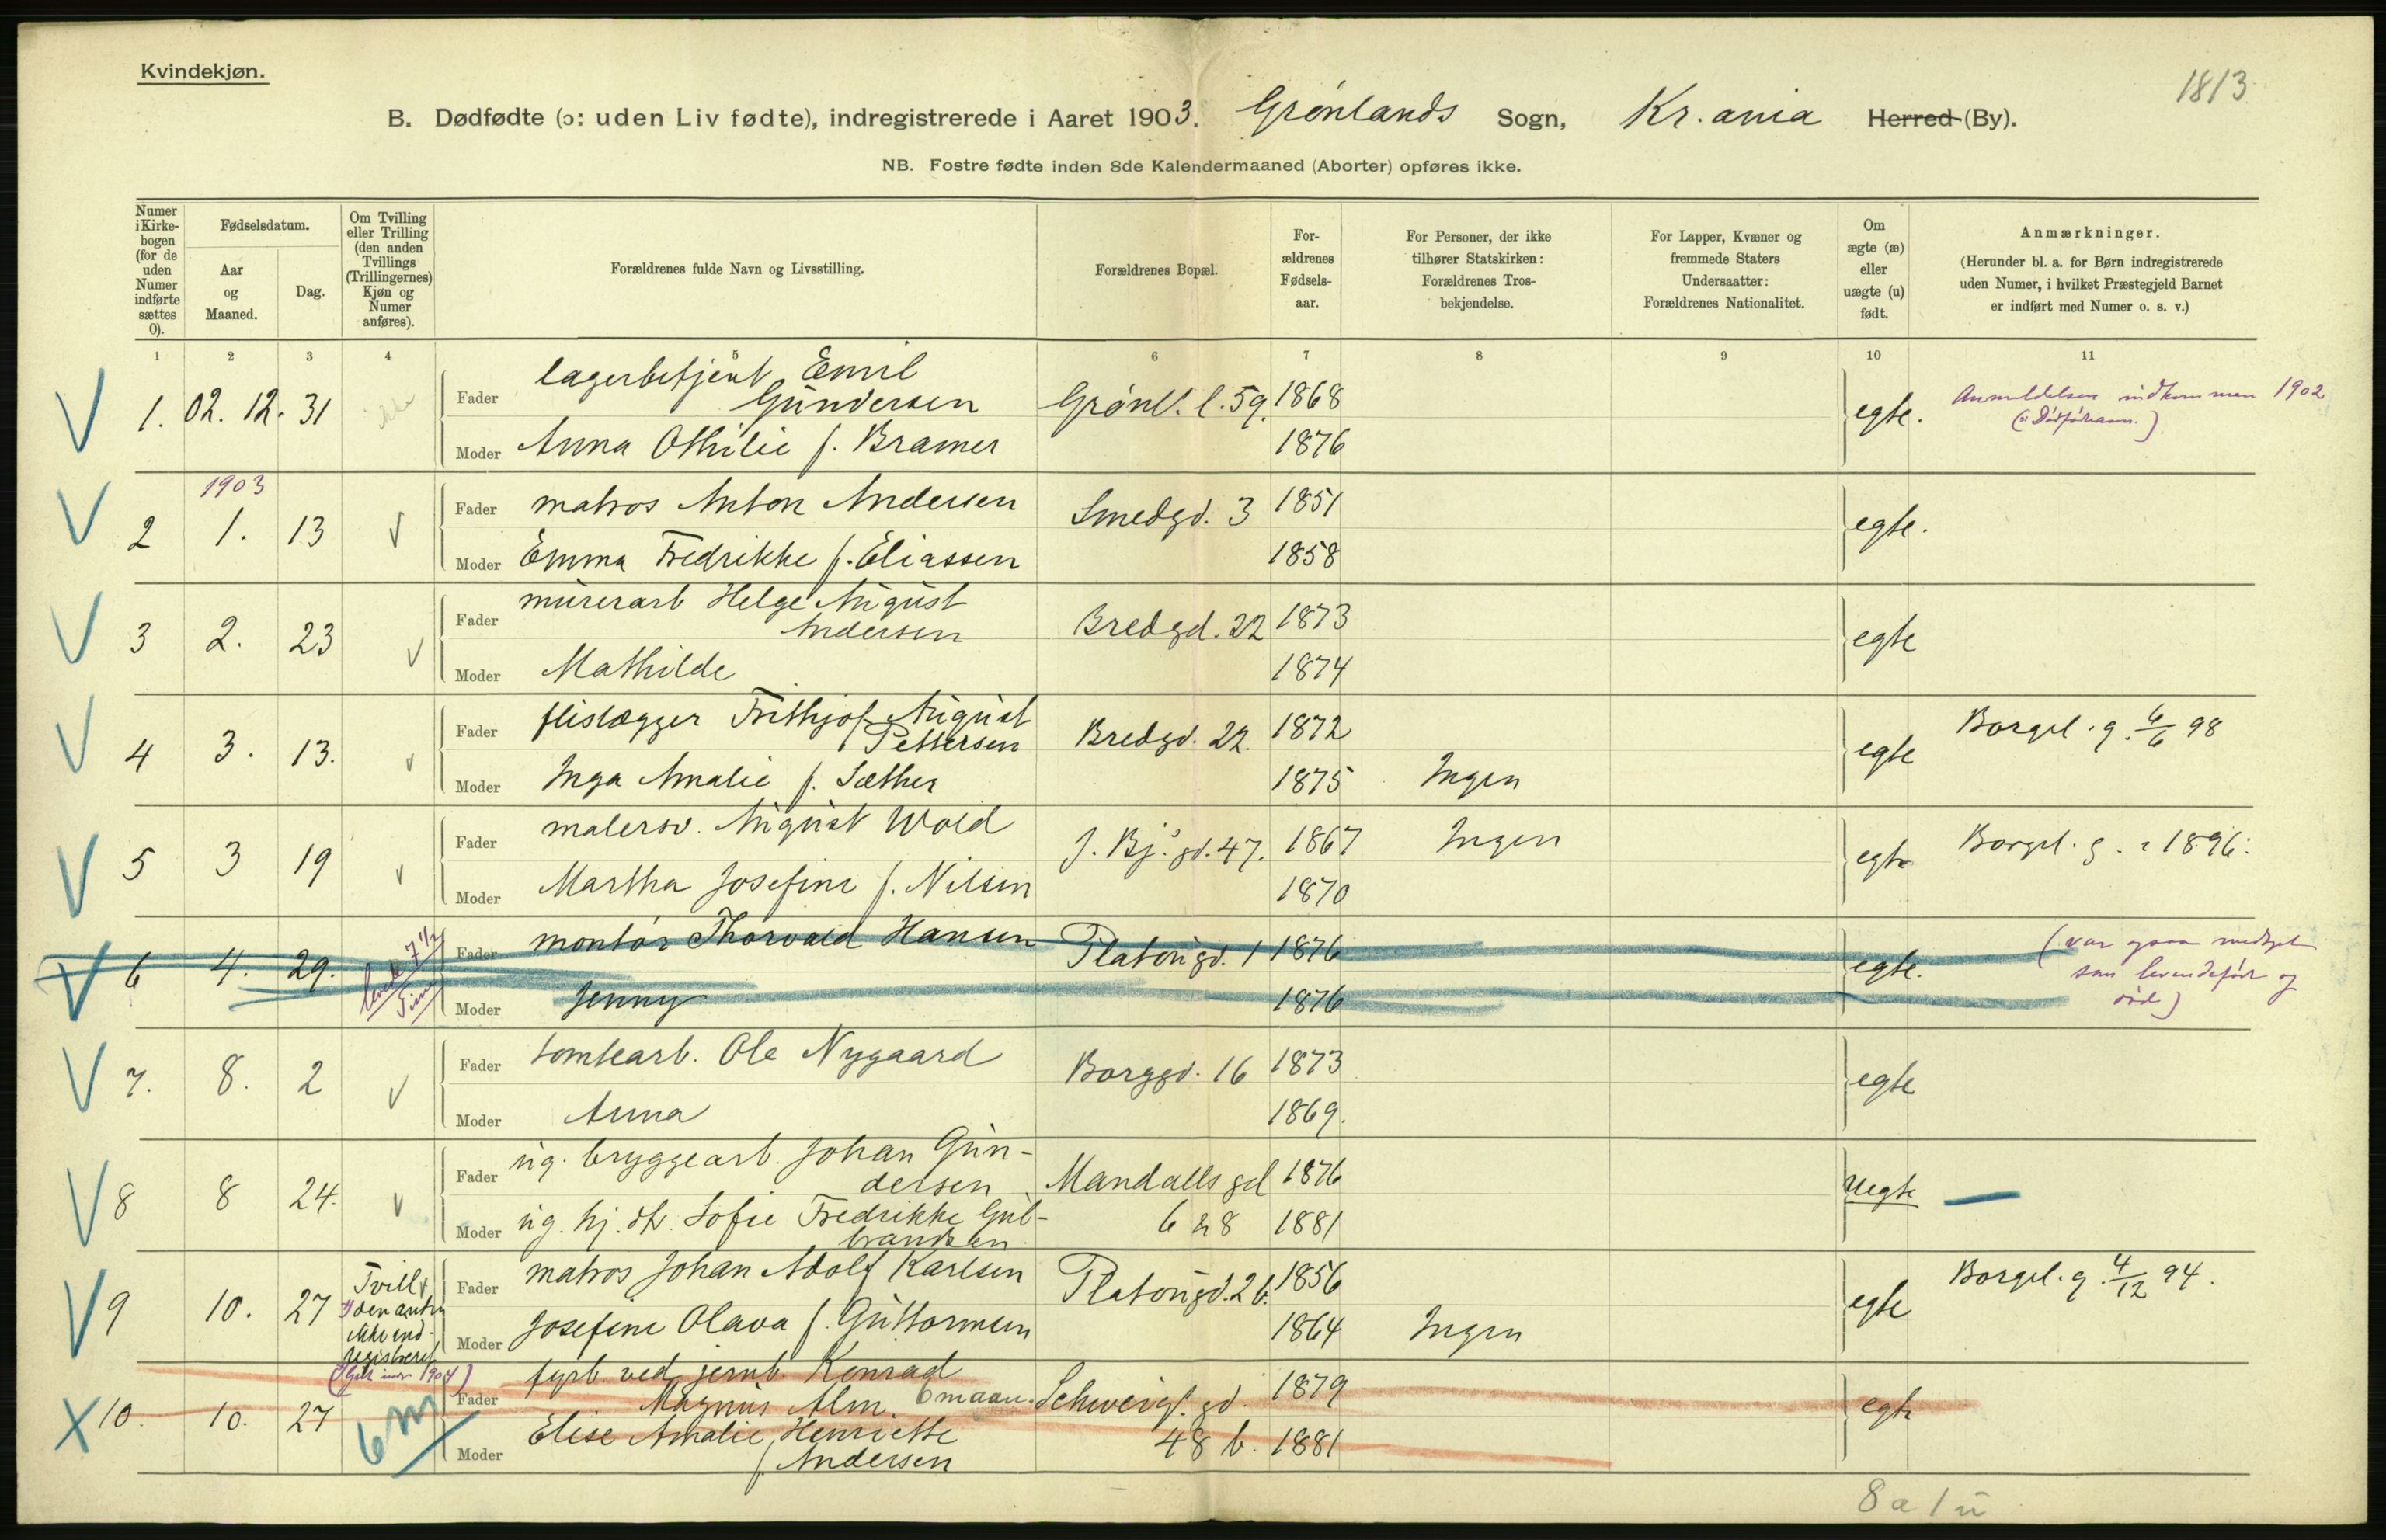 Kvindekjøn.
1813
B. Dødfødte (ɔ: uden Liv fødte), indregistrerede i Aaret 1903. Grønlands Sogn, Kr.ania Herred (By).
NB. Fostre fødte inden 8de Kalendermaaned (Aborter) opføres ikke.
Numer i Kirke-bogen (for de uden Numer indførte sættes 0).
Fødselsdatum.
Aar og Maaned.
Dag.
Om Tvilling eller Trilling (den anden Tvillings (Trillingernes) Kjøn og Numer anføres).
Forældrenes fulde Navn og Livsstilling.
Forældrenes Bopæl.
For-ældrenes Fødsels-aar.
For Personer, der ikke tilhører Statskirken: Forældrenes Tros-bekjendelse.
For Lapper, Kvæner og fremmede Staters Undersaatter: Forældrenes Nationalitet.
Om ægte (æ) eller uægte (u) født.
Anmærkninger.
(Herunder bl. a. for Børn indregistrerede uden Numer, i hvilket Præstegjeld Barnet er indført med Numer o. s. v.)
1 2 3 4 5 6 7 8 9 10 11
V 1. 02. 12. 31 Fader lagerbetjent Emil Gundersen Grønl. l. 59. 1868 egte. Anmeldelsen indkommen 1902
Moder Anna Othilie f. Bramer 1876
1903
V 2 1. 13 V Fader matros Anton Andersen Smedgd. 3 1851 egte.
Moder Emma Fredrikke f. Eliassen 1858
V 3 2. 23 V Fader murerarb Helge August Andersen Bredgd. 22 1873 egte
Moder Mathilde 1874
V 4 3. 13. v Fader flislægger Frithjof August Pettersen Bredgd. 22. 1872 egte Borgel. g. 6/6 98
Moder Inga Amalie f. Sæther 1875 Ingen
V 5 3 19 v Fader malersv. August Wold J. Bj.' gd. 47. 1867 Ingen egte Borgel. g. 1896.
Moder Martha Josefine f. Nilsen 1870
V 6 4. 29. Fader montør Thorvald Hansen Platougd. 1 1876 egte. (var ogsaa medtget som levendefødt og død)
Moder Jenny 1876
V 7. 8. 2 V Fader tomtearb. Ole Nygaard Borggd. 16 1873 egte
Moder Anna 1869.
V 8 8 24. v Fader ug. bryggearb. Johan Gun-dersen Mandalls gd 1876 uegte
Moder ug. hj. dtr. Sofie Fredrikke Gul-brandsen 6 & 8 1881
V 9 10. 27 Tvill. den anden ikke ind-registreret Fader matros Johan Adolf Karlsen Platougd. 26. 1856 egte Borgel. g. 4/12 94.
Moder Josefine Olava f. Guttormsen 1864 Ingen
X 10. 10. 27 6 m Fader fyrb. ved jernb. Konrad Magnus Alm 6 maan. Schweigs. gd. 1879 egte
Moder Elise Amalie Henriette f. Andersen 48 b. 1881
8 a 1 u